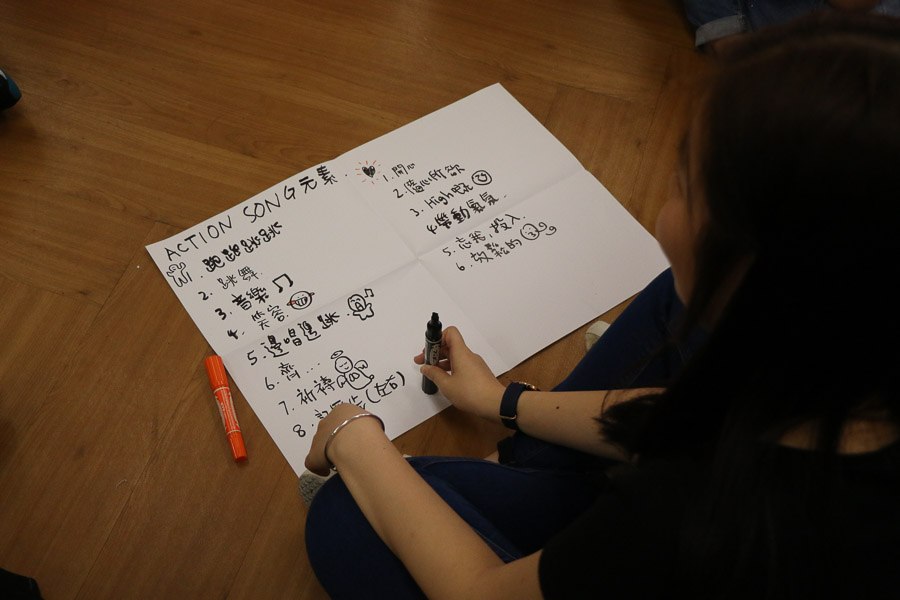 ACTION SONG元素.
1. 跑跑跳跳
2. 跳舞.
3. 音樂
4. 笑容
5. 邊唱邊跳.
6. 齊....
7. 祈禱
8.
1. 開心
2. 隨心所欲
3. High
4 帶動氣氛.
5. 忘我, 投入.
6. 放鬆的